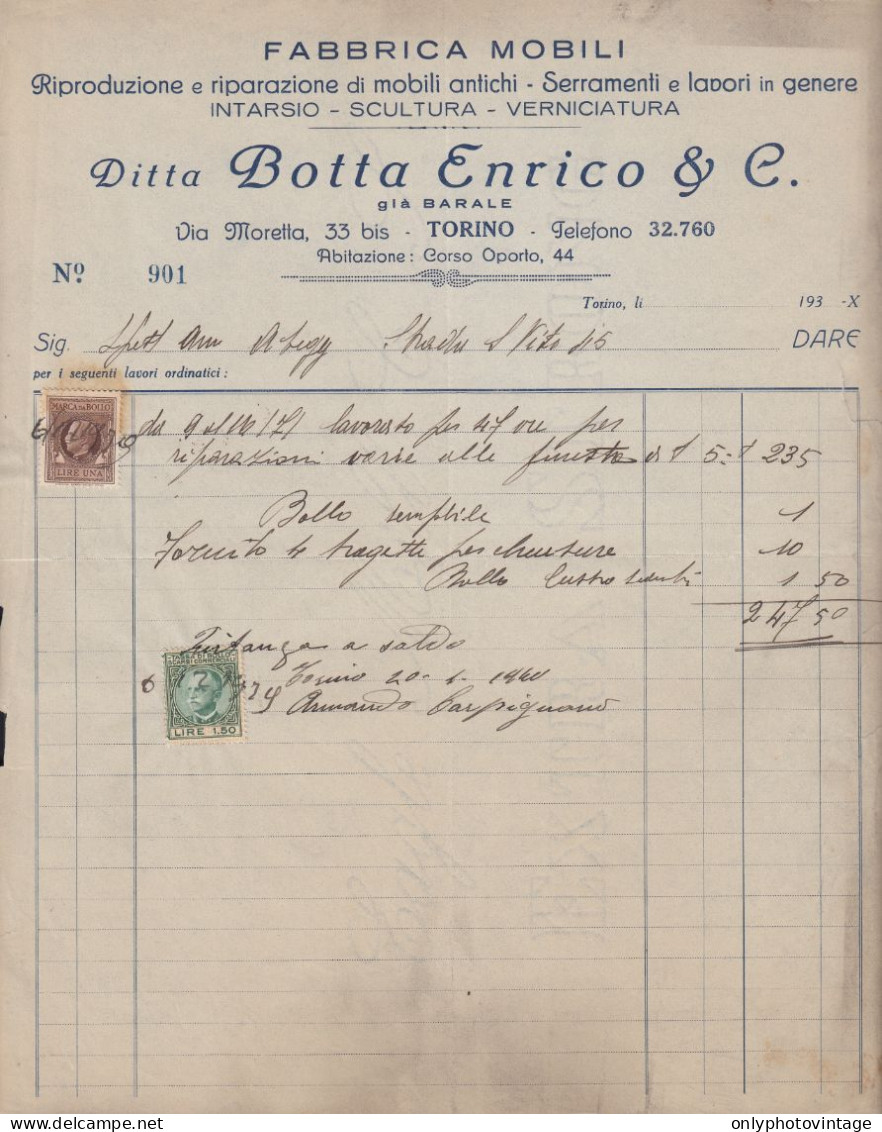 FABBRICA MOBILI
Riproduzione e riparazione di mobili antichi - Serramenti e lavori in genere
INTARSIO - SCULTURA - VERNICIATURA
Ditta Botta Enrico & C.
già BARALE
Via Moretta, 33 bis - TORINO - Telefono 32.760
Abitazione: Corso Oporto, 44
Nº 901
Torino, li 193 -X
Sig. Spett Amm Abegg Strada S Vito DARE
per i seguenti lavori ordinatici:
MARCA DA BOLLO
LIRE UNA
da 9 al 16/ lavorato per 47 ore per
riparazioni varie alle finestre a £ 5 = £ 235
Bollo semplice 1
Fornito 4 per chiusure 10
Bollo 1 50
247 50
Quitanza a saldo
Torino 20-1-1940
Armando Carpignano
LIRE 1.50
onlyphotovintage
Delcampe.net